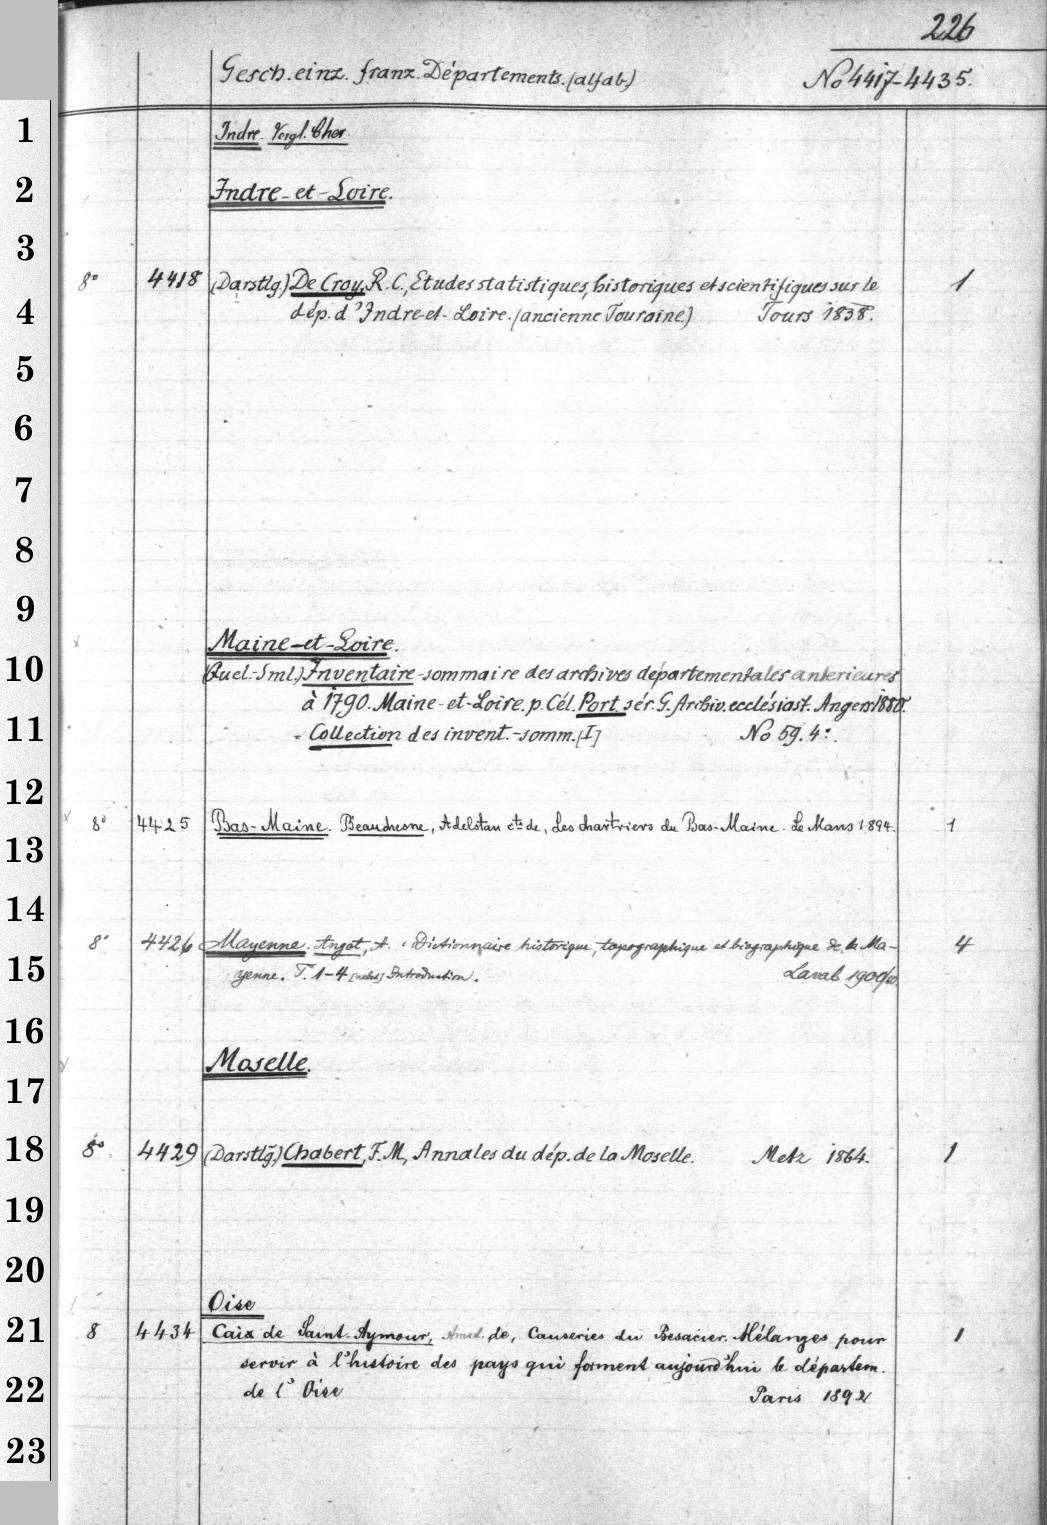 226
Gesch. einz. franz. Départements. (alfab.) No 4417-4435.
1
Indre. Vergl. Cher.
2
Indre-et-Loire.
3
8° 4418 (Darstlg.) De Croy, R. C., Etudes statistiques, historiques et scientifiques sur le 1
4
dép. d'Indre-et-Loire. (ancienne Touraine.) Tours 1838.
5
6
7
8
9
Maine-et-Loire.
10
(Quel.-Sml.) Inventaire-sommaire des archives départementales anterieures
à 1790. Maine-et-Loire. p. Cél. Port sér. G. Archiv. ecclésiast. Angers 1880.
11
- Collection des invent.-somm. [I] No 59. 4°.
12
8° 4425 Bas-Maine. Beauchesne, Adelstan cte de, Les chartriers du Bas-Maine. Le Mans 1894. 1
13
14
8° 4426 Mayenne. Angot, A. Dictionnaire historique, topographique et biographique de la Ma- 4
15
yenne. T. 1-4 Introduction. Laval 1900/10.
16
Moselle.
17
18
8° 4429 (Darstlg.) Chabert, F. M., Annales du dép. de la Moselle. Metz 1864. 1
19
20
Oise
21
8 4434 Caix de Saint-Aymour, Amed. de, Causeries du Besacier. Mélanges pour 1
servir à l'histoire des pays qui forment aujourd'hui le départem.
22
de l'Oise Paris 1892
23